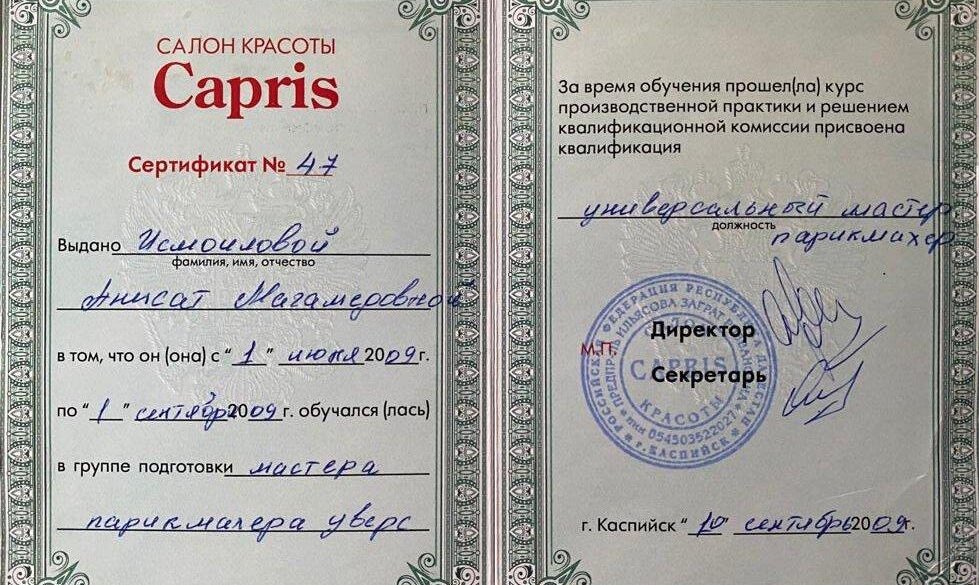 САЛОН КРАСОТЫ
Capris
Сертификат № 47
Выдано Исмоиловой
фамилия, имя, отчество
Анисат Магамедовной
в том, что он (она) с "1" июня 2009г.
по "1" сентябрь 2009 г. обучался (лась)
в группе подготовки мастера
парикмахера уверс
За время обучения прошел(ла) курс
производственной практики и решением
квалификационной комиссии присвоена
квалификация
универсальный мастер
должность
парикмахер
Директор
М.П.
Секретарь
РОССИЙСКАЯ ФЕДЕРАЦИЯ РЕСПУБЛИКА ДАГЕСТАН
г. КАСПИЙСК
ИЛЬЯСОВА
ИНН 054503522027
CAPRIS
КРАСОТЫ
г. Каспийск "10" сентябрь 2009г.